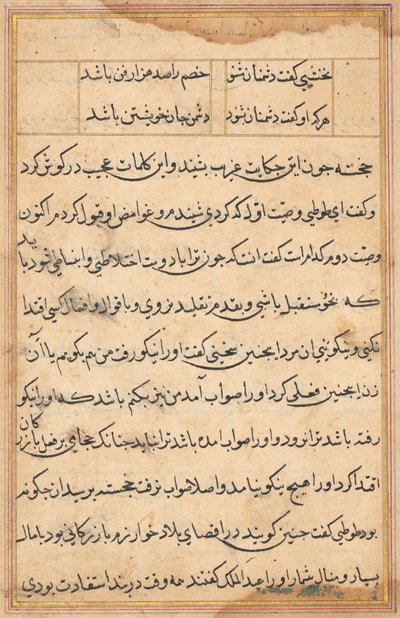 نخشبی گفت دشمنان نشنو خصم را صد هزار فن باشد
هر که او گفت دشمنان نشنود دشمن جان خویشتن باشد
خجسته چون این حکایت غریب بشنید و این کلمات عجیب در گوش کرد
و گفت ای طوطی وصیت اول که کردی شنیدم و غوامض او قبول کردم اکنون
وصیت دوم کدام است گفت آنست که چون ترا با دوست اختلاطی و انبساطی شود باید
که بخود مستقبل باشی و بقدم تقلید نروی و باقوال و افعال کسی اقتدا
نکنی و نیکو بینی آن مرد اینچنین سخنی گفت او را نیکو رفت من هم بگویم یا آن
زن اینچنین فعلی کرد او را صواب آمد من نیز بکنم باشد که او را نیکو
رفته باشد ترا نرود و او را صواب آمده باشد ترا نیاید چنانک حجامی بر فعل بازرکان
اقتدا کرد او را هیچ نیکو نیامد و اصلا صواب نرفت خجسته پرسید آن چگونه
بود طوطی گفت چنین گویند در اقصای بلاد خوارزم بازرکانی بود با مال
بسیار و منال بیشمار او را عبد الملک گفتند همه وقت در بند استفادت بودی